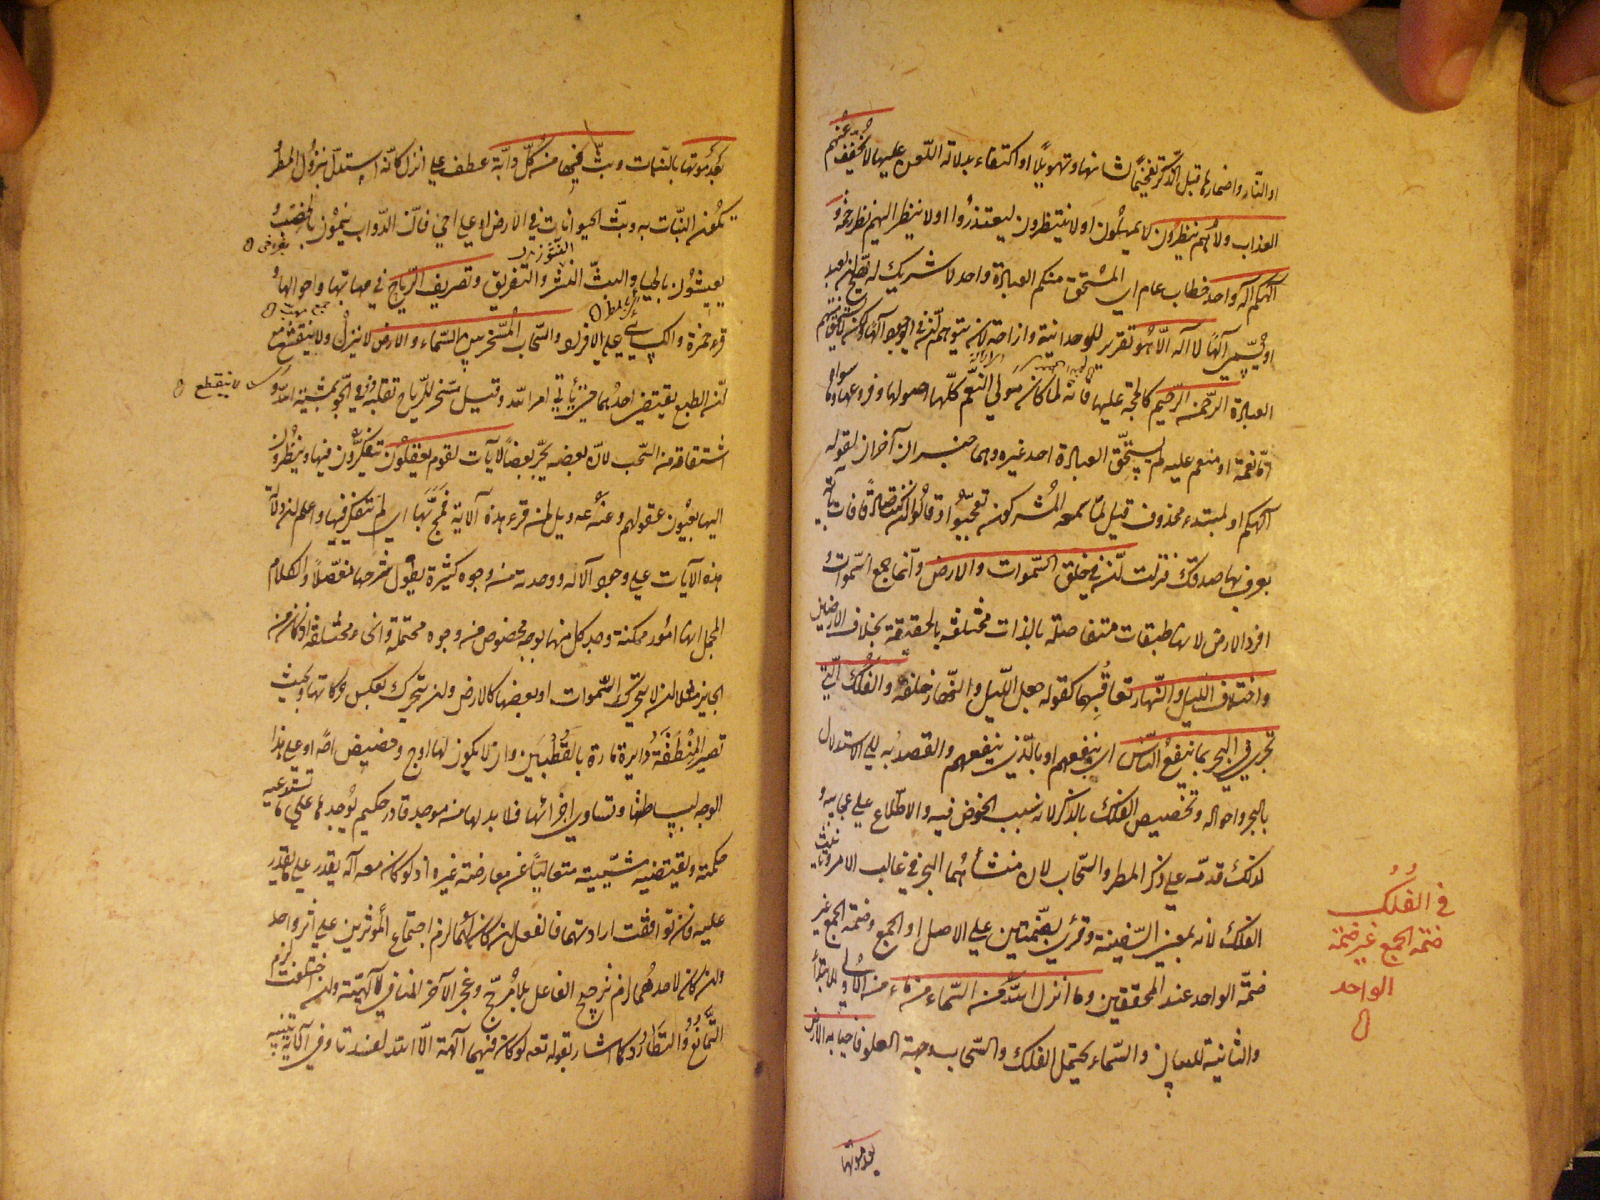 او النار واضمارها قبل الذكر تفخيما لشانها وتهويلا او اكتفاء بدلالة اللعن عليها لا يخفف عنهم
العذاب ولا هم ينظرون لا يمهلون او لا ينتظرون ليعتذروا او لا ينظر اليهم نظر رحمة و
الهكم اله واحد خطاب عام اى المستحق منكم العبادة واحد لا شريك له يصح ان يعبد
او يسمى الها لا اله الا هو تقرير للوحدانية وازاحة لان يتوهم ان فى الوجود الها ولكن لا يستحق منهم
العبادة الرحمن الرحيم كالحجة عليها فانه لما كان مولى النعم كلها اصولها وفروعها وما سواه
اما نعمة او منعم عليه لم يستحق العبادة احد غيره وهما خبران آخران لقوله
الهكم او لمبتدء محذوف قيل لما سمعه المشركون تعجبوا وقالوا ان كنت صادقا فات بآية
يعرف بها صدقك فنزلت ان فى خلق السموات والارض وانما جمع السموات و
افرد الارض لانها طبقات متفاصلة بالذات مختلفة بالحقيقة بخلاف الارضين
واختلاف الليل والنهار تعاقبهما كقوله جعل الليل والنهار خلفة والفلك التى
تجرى فى البحر بما ينفع الناس اى ينفعهم او بالذى ينفعهم والقصد به الى الاستدلال
بالبحر واحواله وتخصيص الفلك بالذكر لانه سبب الخوض فيه والاطلاع على عجايبه و
لذلك قدمه على ذكر المطر والسحاب لان منشأهما البحر فى غالب الامر وتانيث
الفلك لانه بمعنى السفينة وقرئ بضمتين على الاصل او الجمع وضمة الجمع غير
ضمة الواحد عند المحققين وما انزل الله من السماء من ماء من الاولى للابتداء
والثانية للبيان والسماء يحتمل الفلك والسحاب وجهة العلو فاحيا به الارض
بعد موتها
فى الفلك
ضمة الجمع غير ضمة
الواحد
بعد موتها بالنبات وبث فيها من كل دابة عطف على انزل كانه استدل بنزول المطر
وتكون النبات به وبث الحيوانات فى الارض او على احيى فان الدواب ينمون بالخصب و
يعيشون بالحيا والبث النشر والتفريق وتصريف الرياح فى مهابها واحوالها و
قرء حمزة والكسائى على الافراد والسحاب المسخر بين السماء والارض لا ينزل ولا ينقشع مع
ان الطبع يقتضى احدهما حتى يأتى امر الله وقيل مسخر للرياح تقلبه فى الجو بمشية الله و
اشتقاقه من السحب لان بعضه يجر بعضا لآيات لقوم يعقلون يتفكرون فيها وينظرون
اليها بعيون عقولهم وعنه عه ويل لمن قرء هذه الآية فمج بها اى لم يتفكر فيها واعلم ان دلالة
هذه الآيات على وجود الاله ووحدته من وجوه كثيرة يطول شرحها مفصلا والكلام
المجمل انها امور ممكنة وجد كل منها بوجه مخصوص من وجوه محتملة وانحاء مختلفة اذ كان من
الجايز مثلا ان لا يتحرك السموات او بعضها كالارض وان يتحرك بعكس حركاتها وبحيث
تصير المنطقة دايرة مارة بالقطبين وان لا يكون لها اوج وحضيض اصلا او على هذا
الوجه لبساطتها وتساوى اجزائها فلا بد لها من موجد قادر حكيم يوجدها على ما تستدعيه
حكمته وتقتضيه مشيته متعاليا عن معارضة غيره اذ لو كان معه اله يقدر على ما يقدر
عليه فان توافقت ارادتهما فالفعل ان كان لهما لزم اجتماع المؤثرين على اثر واحد
وان كان لاحدهما لزم ترجيح الفاعل بلا مرجح وعجز الآخر المنافى لآلهيته وان اختلفت لزم
التمانع والتطارد كما اشار بقوله تعه لو كان فيهما آلهة الا الله لفسدتا وفى الآية تنبيه